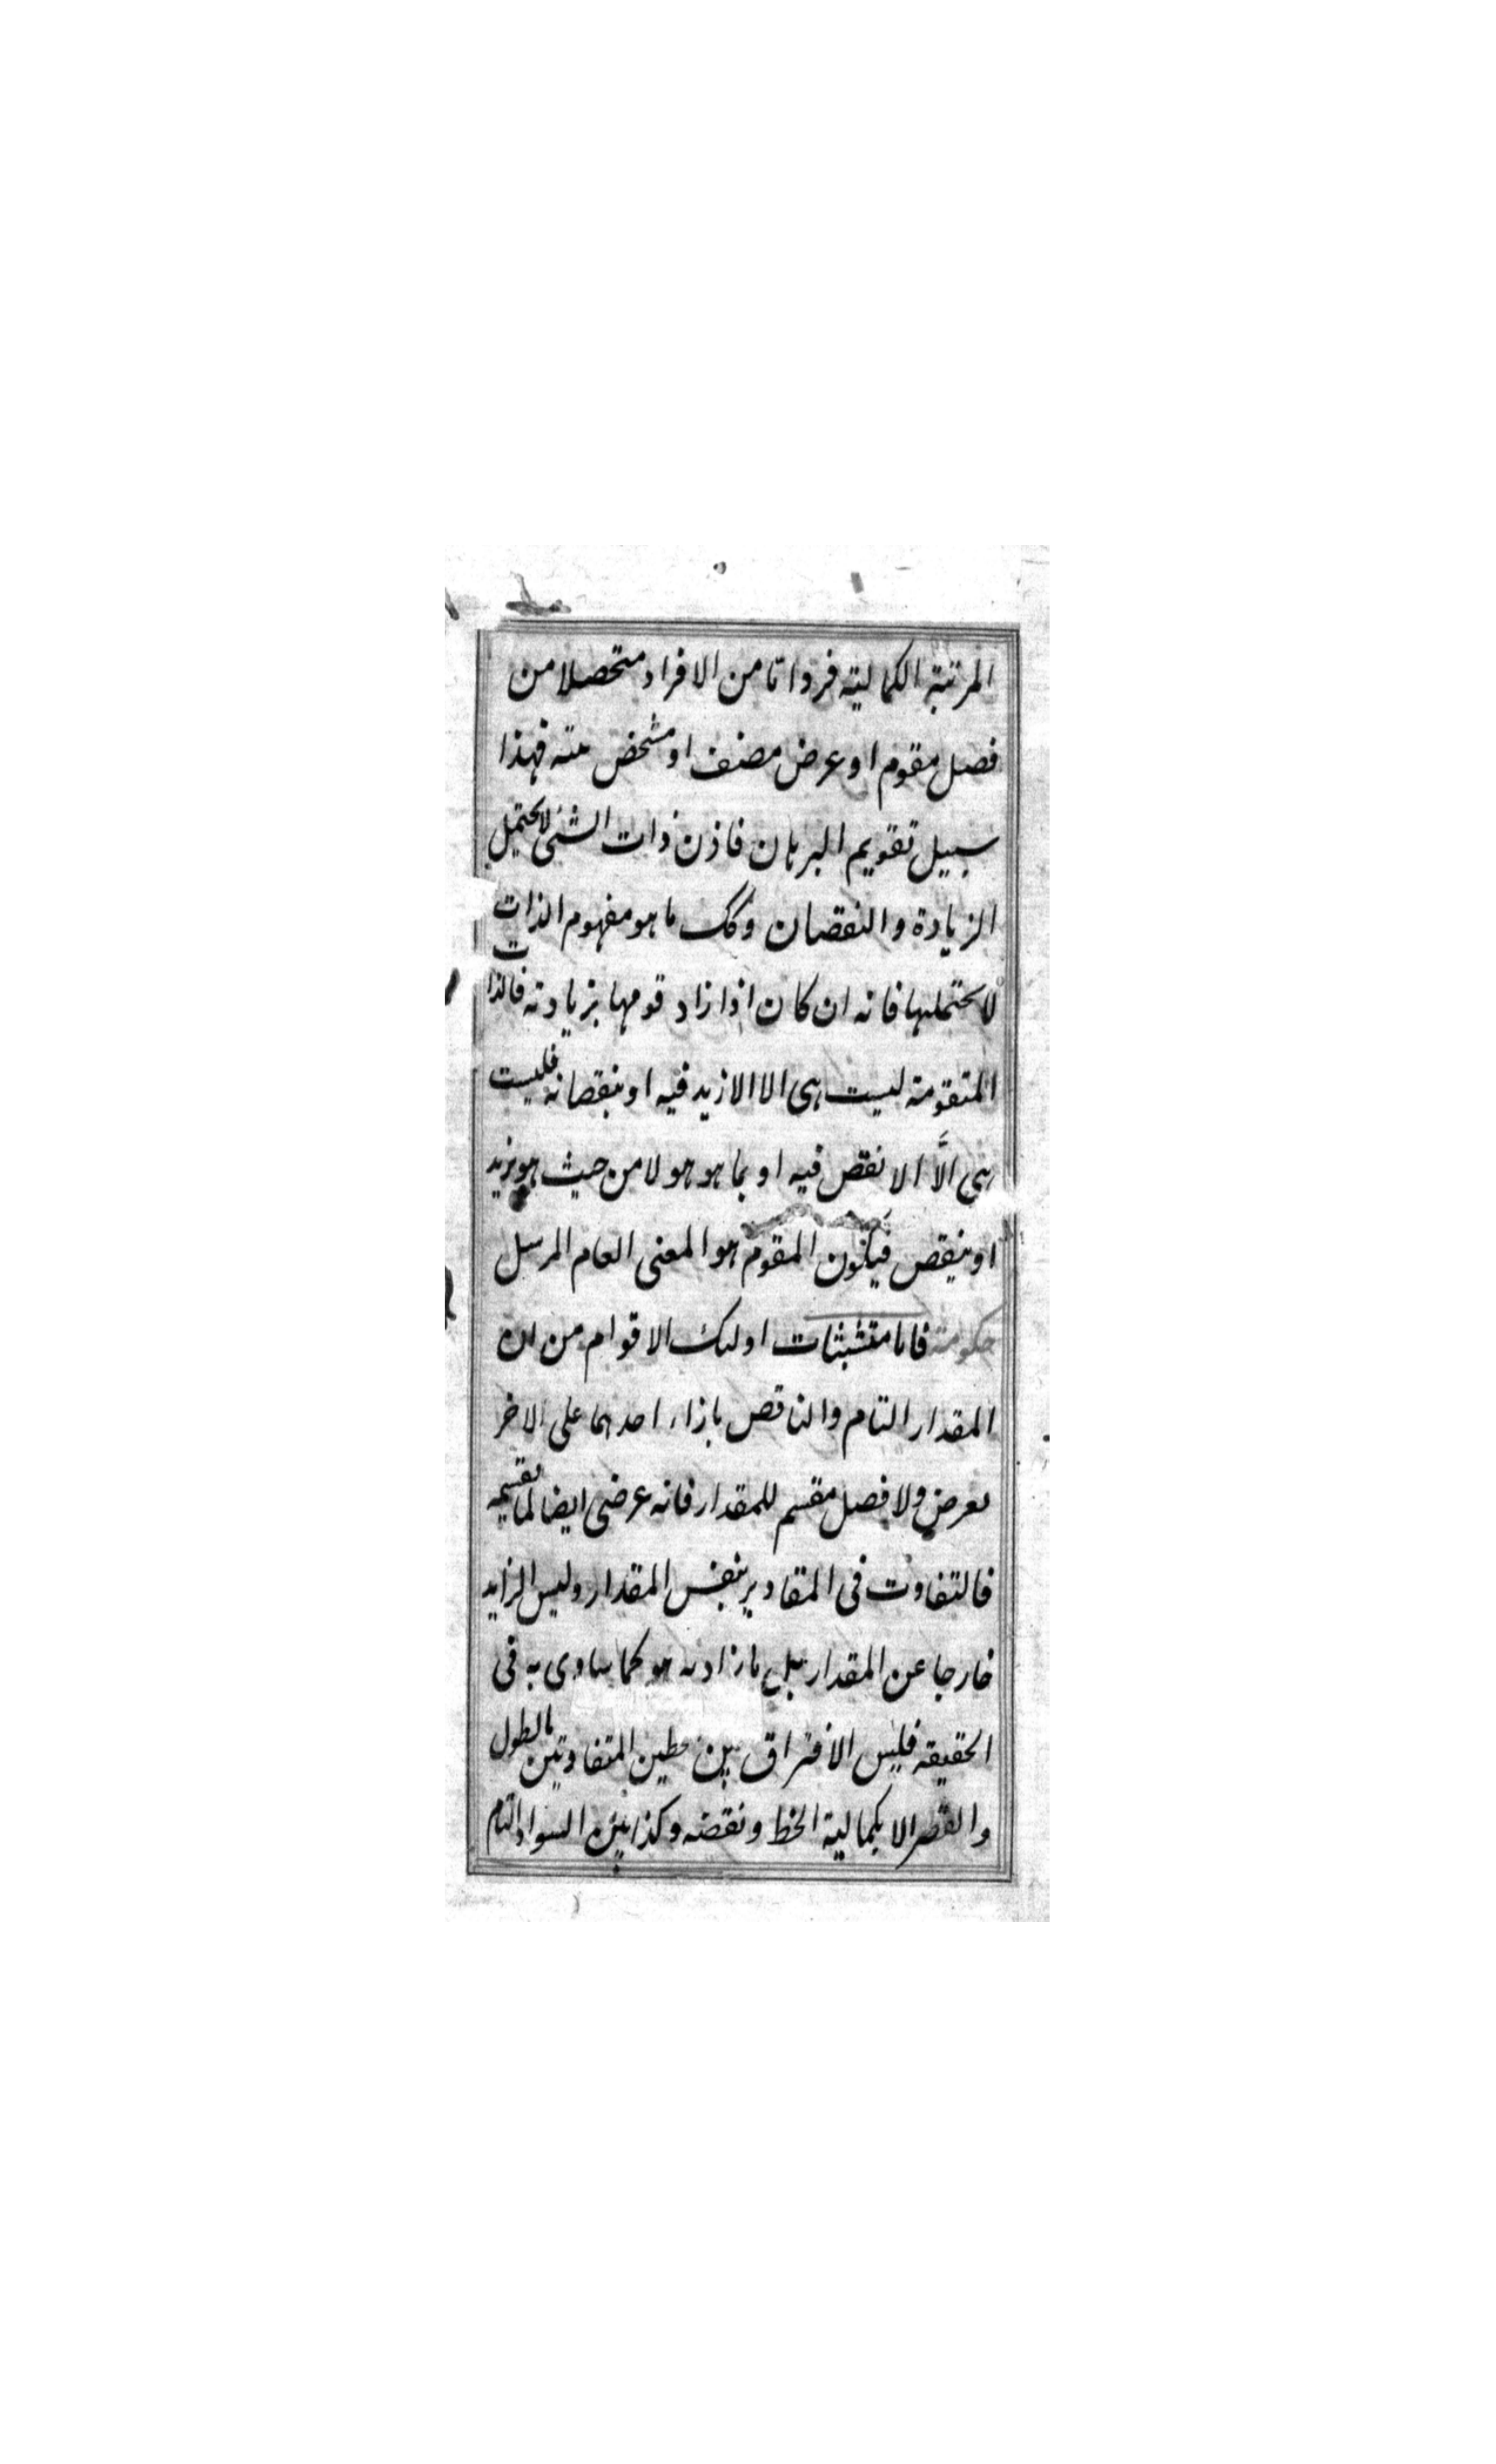 المرتبة الكمالية فردا تا من الافراد متحصلا من
فصل مقوم او عرض مصنف او مشخص عنه فهذا
سبيل تقويم البرهان فاذن ذات الشئ لا يحتمل
الزيادة والنقصان وكك ما هو مفهوم الذات
لا يحتملها فانه ان كان اذا زاد قومها بزيادته فالذات
المتقومة ليست هى الا الازيد فيه او بنقصانه فليست
هى الّا الانقص فيه او بما هو هو لا من حيث هو يزيد
او ينقص فيكون المقوم هو المعنى العام المرسل
حكومة فاما متشبثات اولئك الاقوام من ان
المقدار التام والناقص بازاء احدهما على الاخر
بعرض ولا فصل مقسم للمقدار فانه عرضى ايضا لما يقسمه
فالتفاوت فى المقادير بنفس المقدار وليس الزايد
خارجا عن المقدار بل ما زاد به هو كما ساوى به فى
الحقيقة فليس الافتراق بين خطين المتفاوتين بالطول
والقصر الا بكمالية الخط ونقصه وكذا بين السواد التام